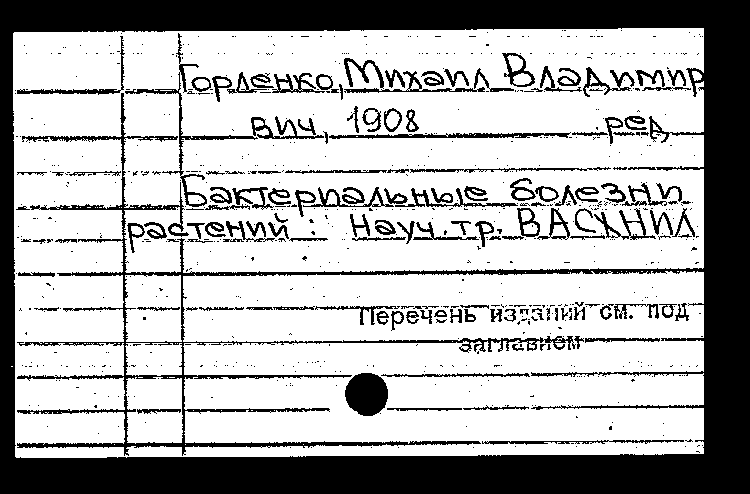 Горленко, Михаил Владимир
вич, 1908 ред
Бактериальные болезни
растений: Науч. тр. ВАСХНИЛ
Перечень изданий см. под
заглавием